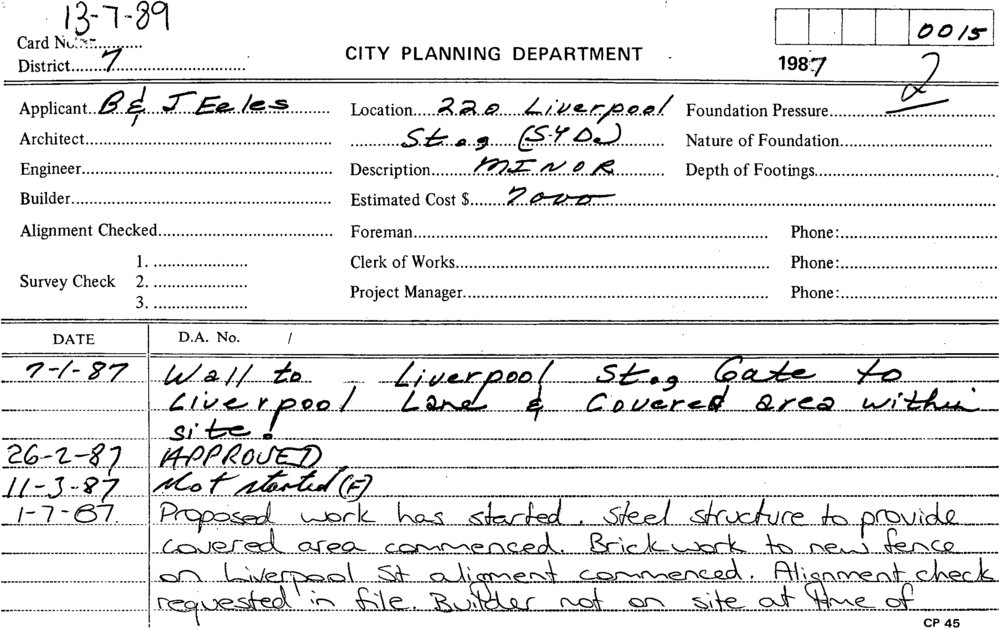 13-7-89
Card No.
District 7
CITY PLANNING DEPARTMENT
0015
1987
2
Applicant B & J Eeles
Location 220 Liverpool
Foundation Pressure
Architect
St., (SYD.)
Nature of Foundation
Engineer
Description MINOR
Depth of Footings
Builder
Estimated Cost $ 7000
Alignment Checked
Foreman
Phone:
Survey Check
1.
2.
3.
Clerk of Works
Phone:
Project Manager
Phone:
DATE
D.A. No. /
7-1-87 Wall to Liverpool St., Gate to
Liverpool Lane & Covered area within
site.
26-2-87 APPROVED
11-3-87 Not started (F)
1-7-87. Proposed work has started. Steel structure to provide
covered area commenced. Brickwork to new fence
on Liverpool St aligment commenced. Alignment check
requested in file. Builder not on site at time of
CP 45